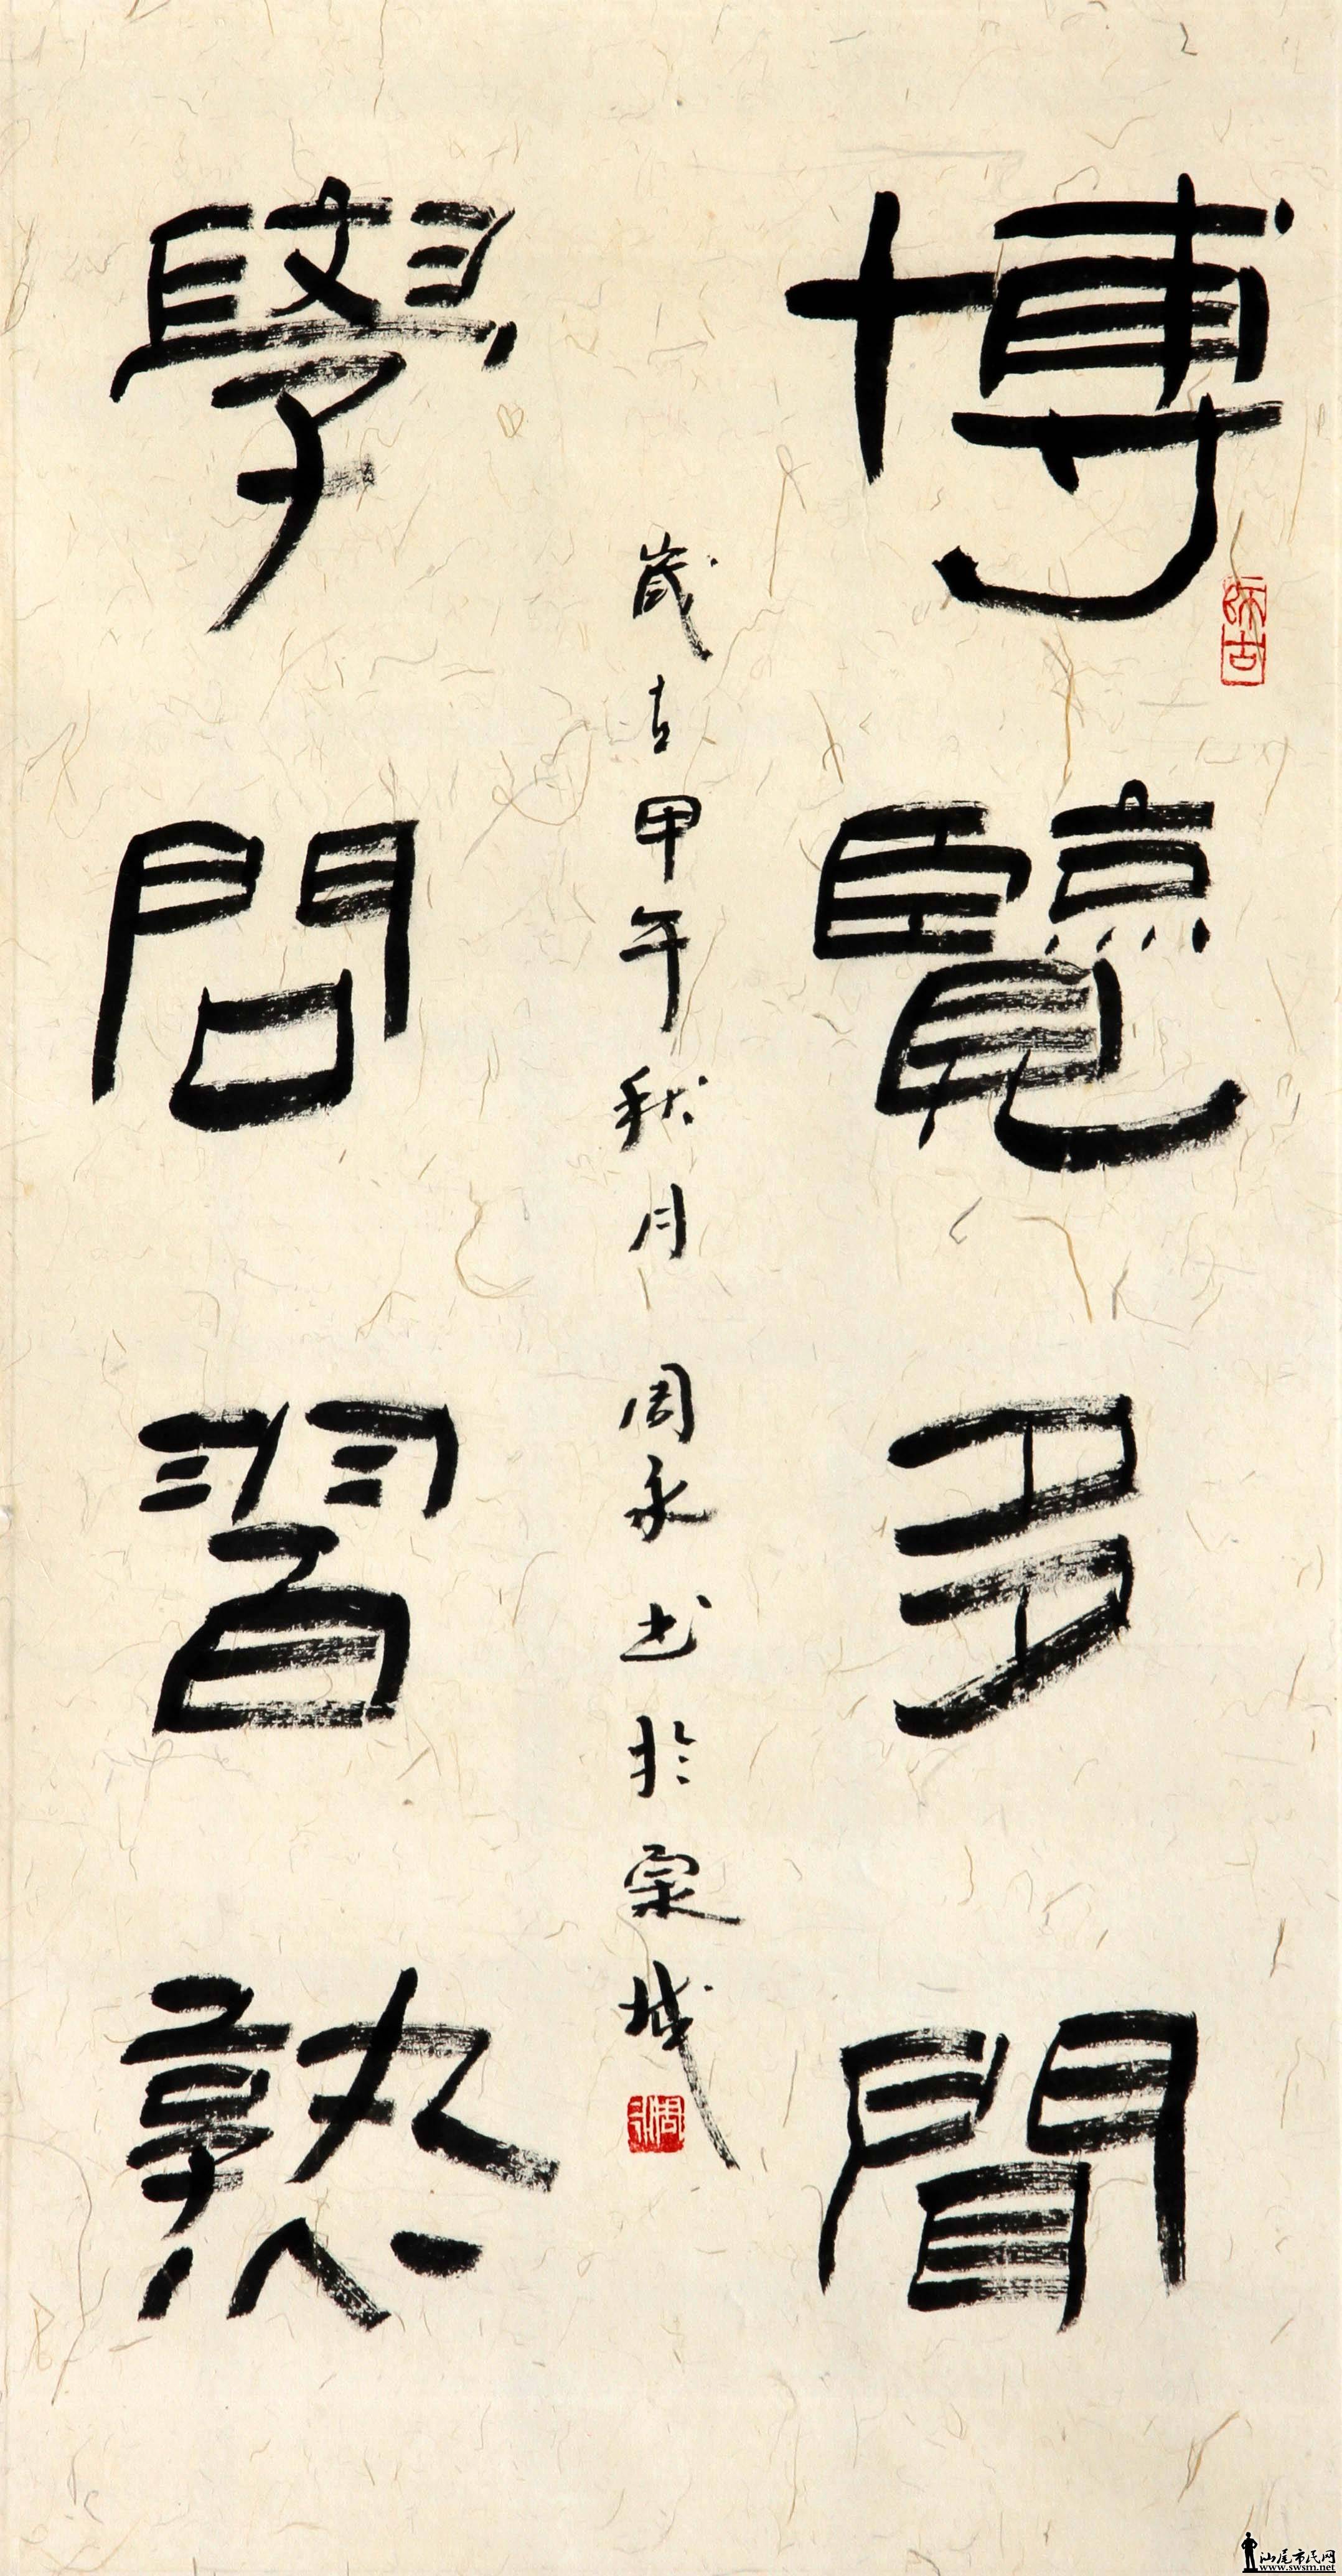 博覽多聞
師古
歲在甲午秋月 周永书於城
周永
學問習熟
汕尾市民网
www.swsm.net